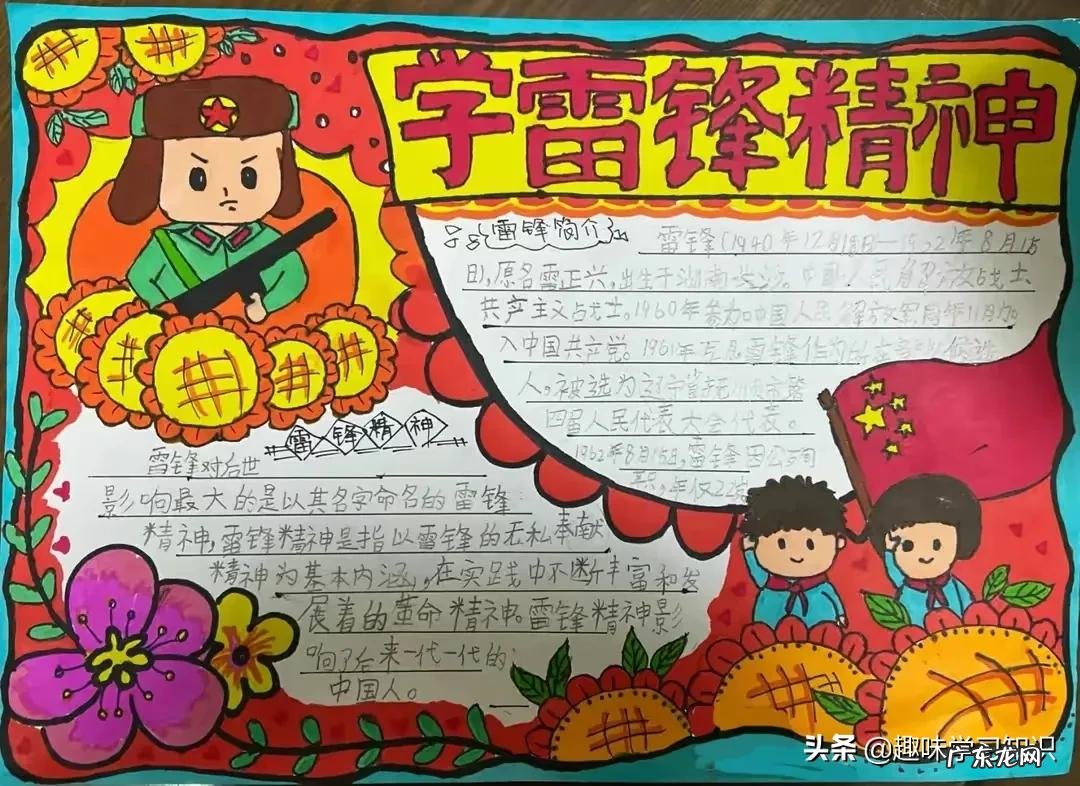 学雷锋精神
雷锋简介
雷锋(1940年12月18日—1962年8月15
日),原名雷正兴,出生于湖南长沙。中国人民解放战士、
共产主义战士。1960年参加中国人民解放军同年11月加
入中国共产党。1961年 雷锋作为 候选
人,被选为辽宁省抚顺市第
四届人民代表大会代表。
1962年8月15日,雷锋因公殉
职,年仅22岁
雷锋精神
雷锋对后世
影响最大的是以其名字命名的雷锋
精神,雷锋精神是指以雷锋的无私奉献
精神为基本内涵,在实践中不断丰富和发
展着的革命精神。雷锋精神影
响了后来一代一代的
中国人。
头条 @趣味学习知识
广东龙网